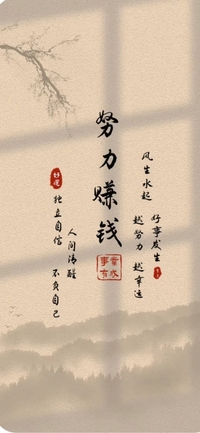 努力赚钱
风生水起
好事发生
越努力 越幸运
好运
独立自信
人间清醒
不负自己